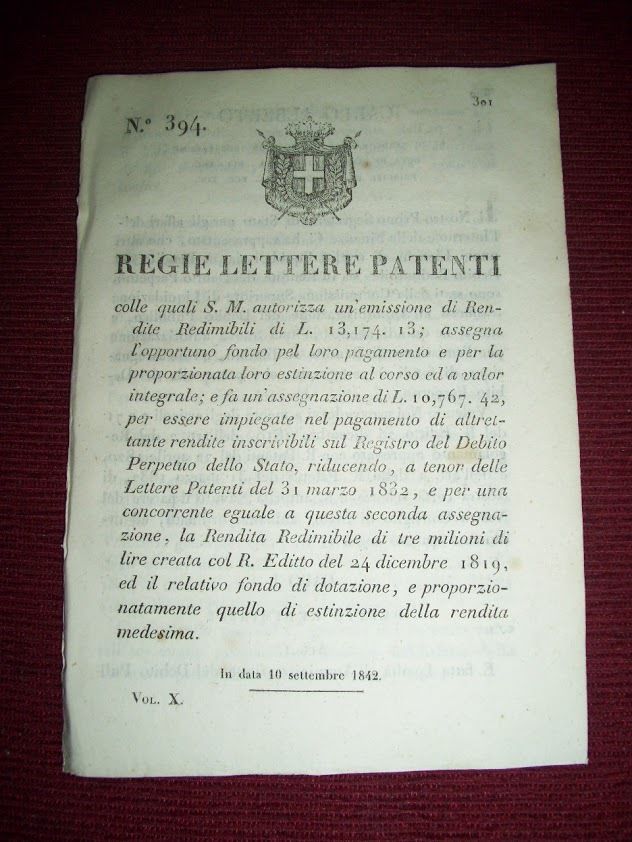 301
N.º 394.
REGIE LETTERE PATENTI
colle quali S. M. autorizza un'emissione di Ren-
dite Redimibili di L. 13,174. 13; assegna
l'opportuno fondo pel loro pagamento e per la
proporzionata loro estinzione al corso ed a valor
integrale; e fa un'assegnazione di L. 10,767. 42,
per essere impiegate nel pagamento di altret-
tante rendite inscrivibili sul Registro del Debito
Perpetuo dello Stato, riducendo, a tenor delle
Lettere Patenti del 31 marzo 1832, e per una
concorrente eguale a questa seconda assegna-
zione, la Rendita Redimibile di tre milioni di
lire creata col R. Editto del 24 dicembre 1819,
ed il relativo fondo di dotazione, e proporzio-
natamente quello di estinzione della rendita
medesima.
In data 10 settembre 1842.
Vol. X.